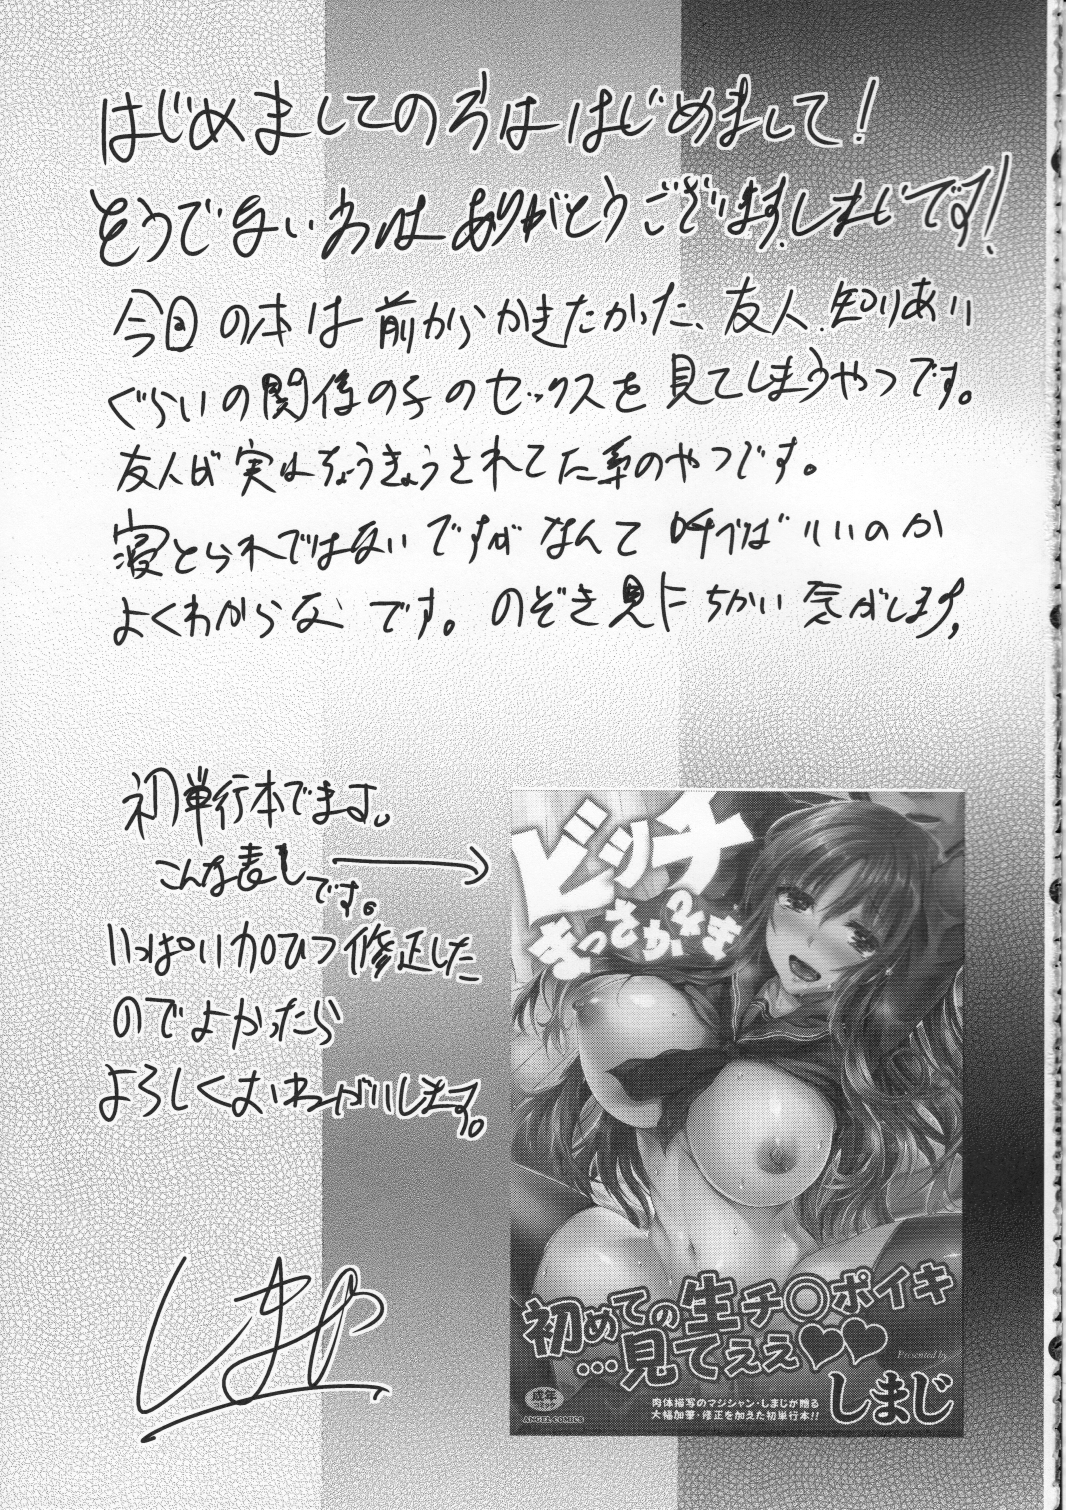 はじめましての方ははじめまして!
そうでない方はありがとうございます。しまじです!
今回の本は前からかきたかった、友人.知りあい
ぐらいの関係の子のセックスを見てしまうやつです。
友人が実はちょうきょうされてた系のやつです。
寝とられではないですがなんて呼べばいいのか
よくわからないです。のぞき見にちかい気がします。
初単行本でます。
こんな表しです。
いっぱい加ひつ修正した
のでよかったら
よろしくおねがいします。
しまじ
ビッチ
まっさかさま
初めての生チ○ポイキ
…見てぇぇ♥♥
Presented by
しまじ
成年
コミック
ANGEL COMICS
肉体描写のマジシャン・しまじが贈る
大幅加筆・修正を加えた初単行本!!